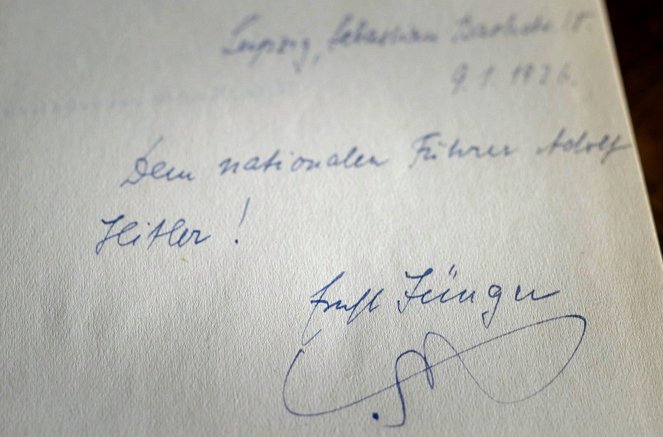 Leipzig, Sebastian Bachstr. 15.
9. 1. 1926.
Dem nationalen Führer Adolf
Hitler!
Ernst Jünger